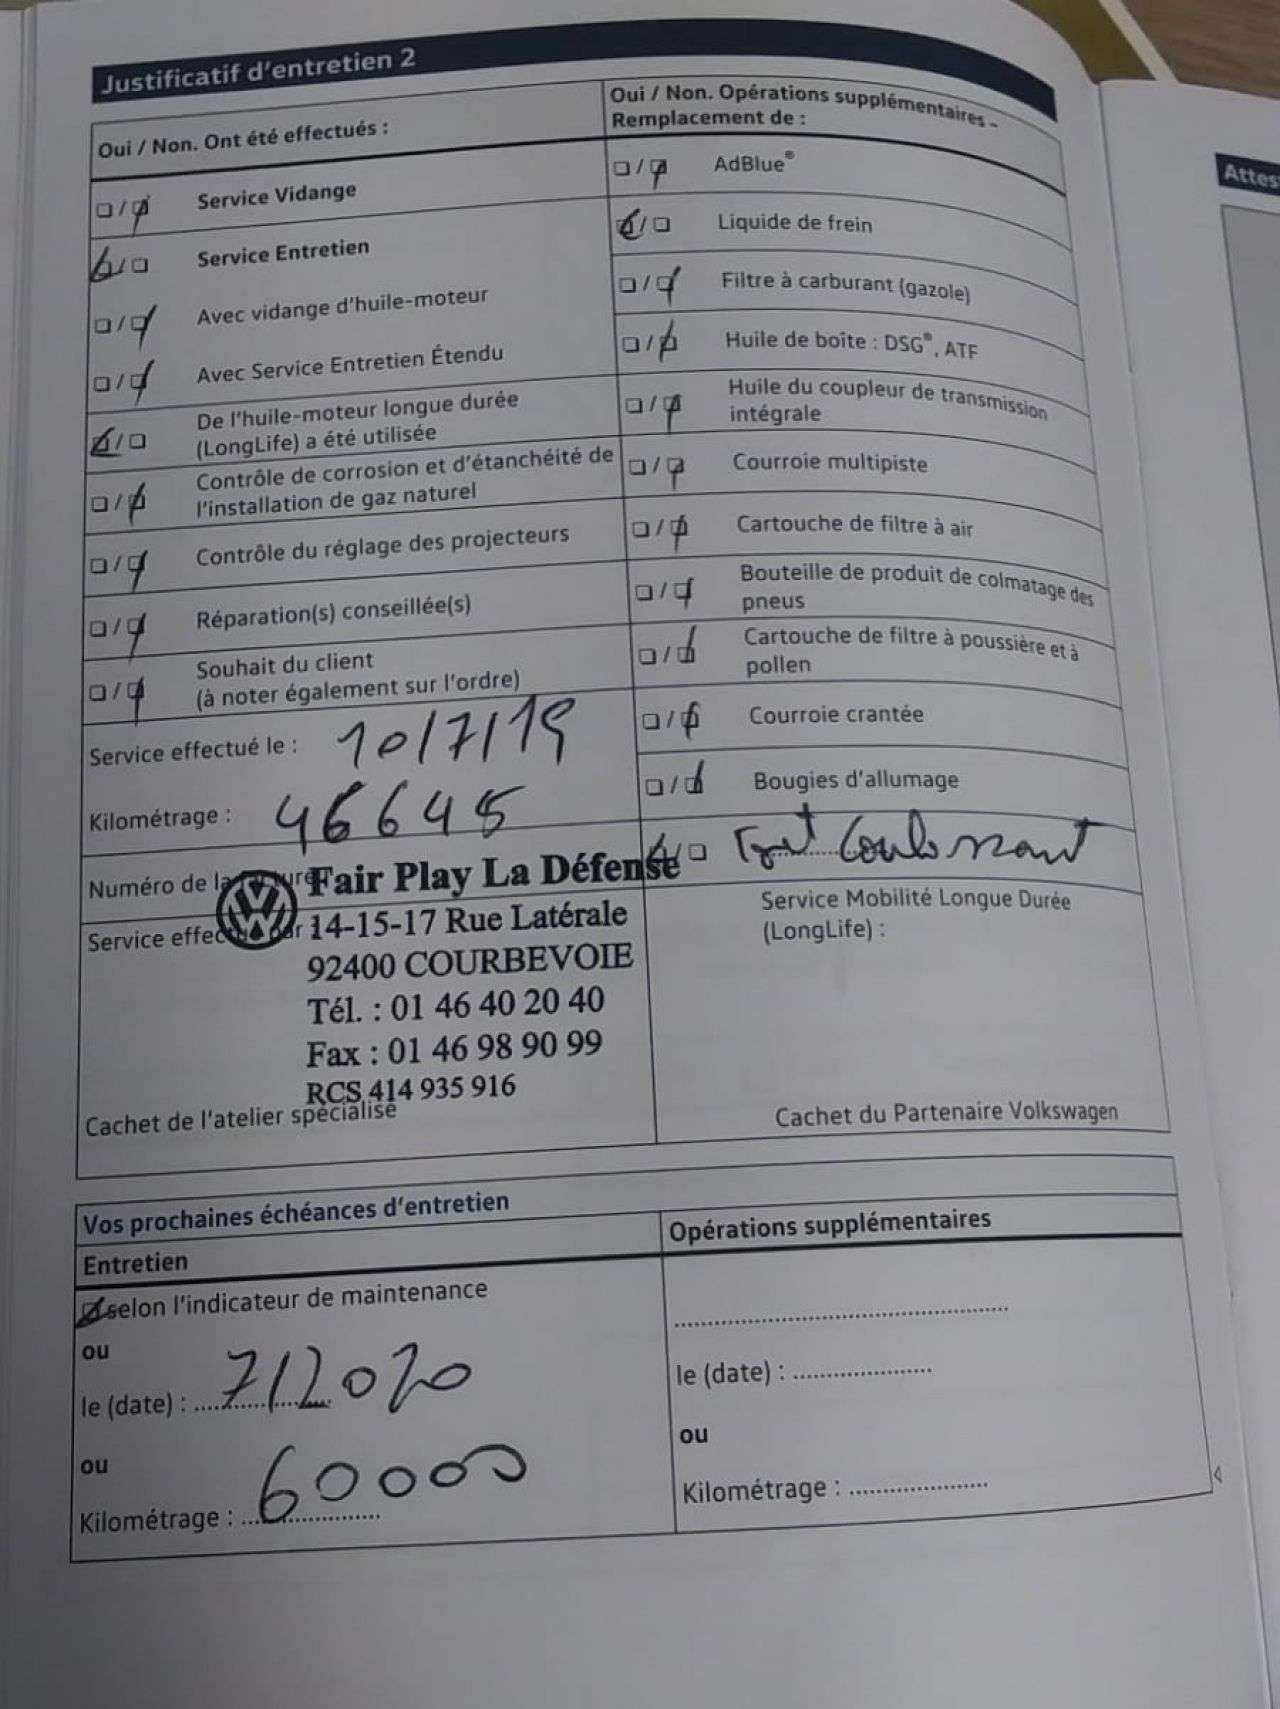 Justificatif d'entretien 2
Oui / Non. Ont été effectués :
Service Vidange
Service Entretien
Avec vidange d'huile-moteur
Avec Service Entretien Étendu
De l'huile-moteur longue durée
(LongLife) a été utilisée
Contrôle de corrosion et d'étanchéité de
l'installation de gaz naturel
Contrôle du réglage des projecteurs
Réparation(s) conseillée(s)
Souhait du client
(à noter également sur l'ordre)
Service effectué le : 10/7/19
Kilométrage : 46645
Numéro de la
Fair Play La Défense
14-15-17 Rue Latérale
92400 COURBEVOIE
Tél. : 01 46 40 20 40
Fax : 01 46 98 90 99
RCS 414 935 916
Service effectué par :
Cachet de l'atelier spécialisé
Oui / Non. Opérations supplémentaires –
Remplacement de :
AdBlue®
Liquide de frein
Filtre à carburant (gazole)
Huile de boîte : DSG®, ATF
Huile du coupleur de transmission
intégrale
Courroie multipiste
Cartouche de filtre à air
Bouteille de produit de colmatage des
pneus
Cartouche de filtre à poussière et à
pollen
Courroie crantée
Bougies d'allumage
Service Mobilité Longue Durée
(LongLife) :
Cachet du Partenaire Volkswagen
Vos prochaines échéances d'entretien
Entretien
selon l'indicateur de maintenance
ou
le (date) : 7/2020
ou
Kilométrage : 60000
Opérations supplémentaires
le (date) :
ou
Kilométrage :
Attes